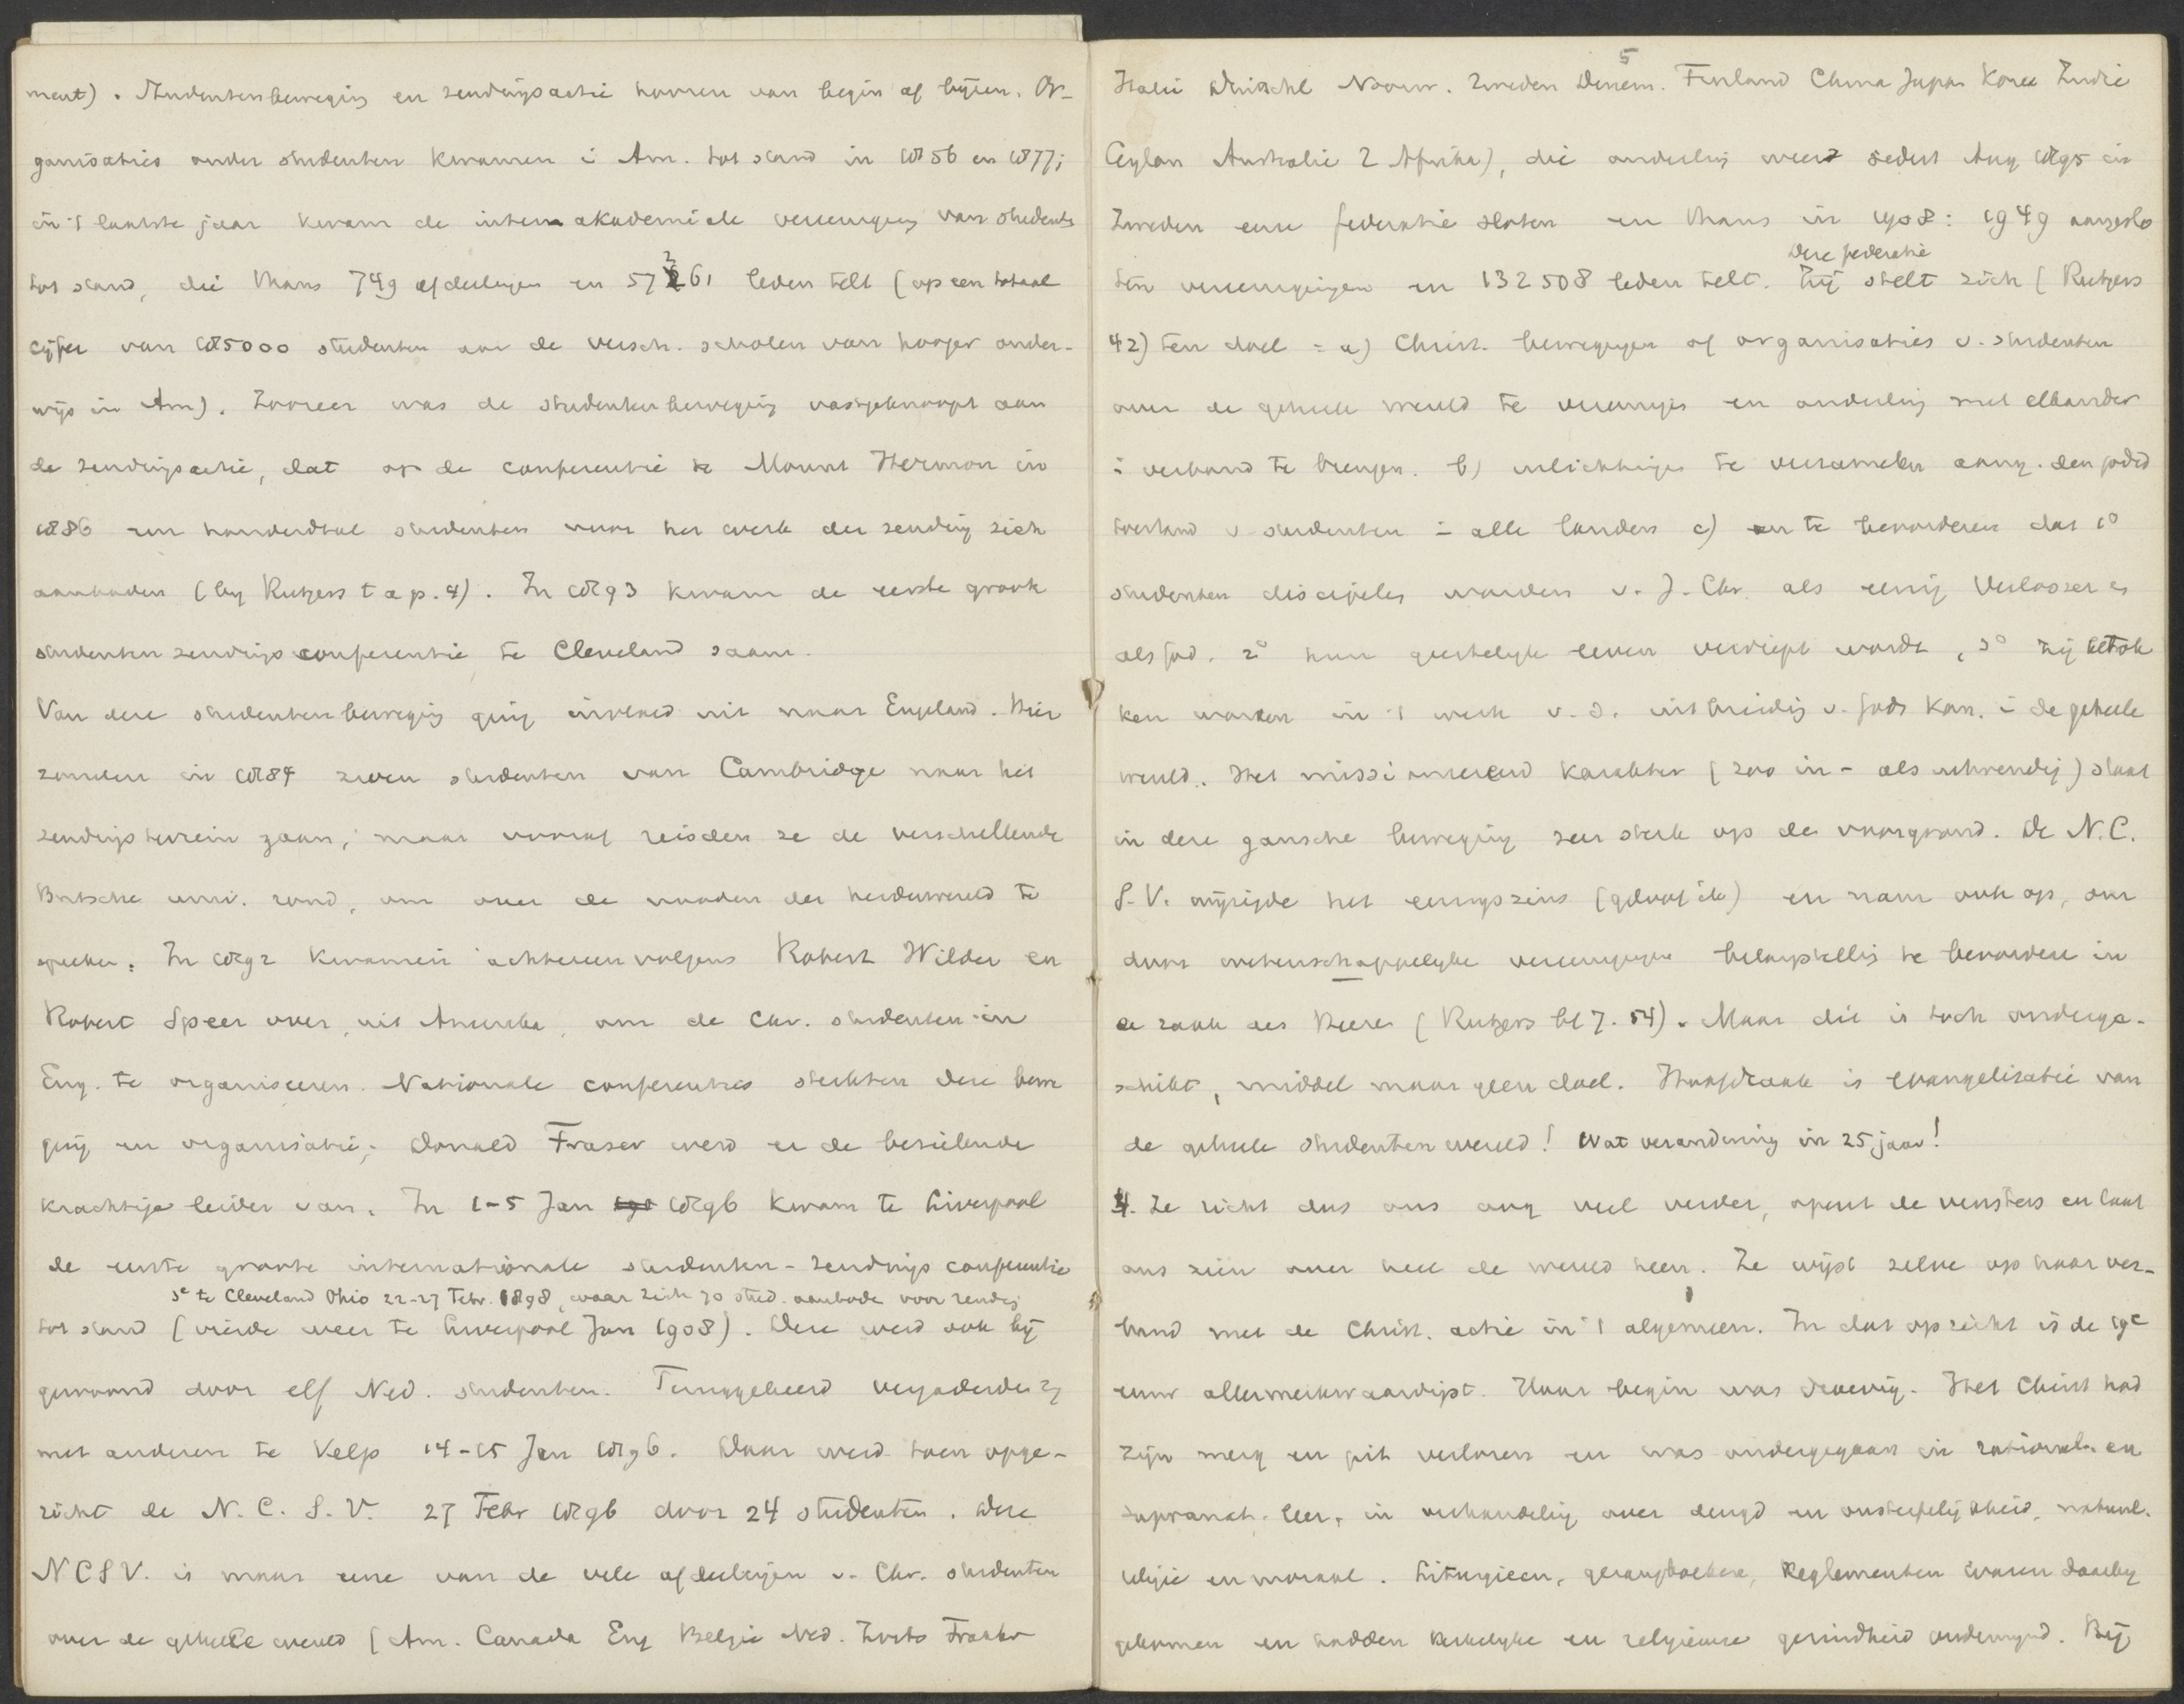 ment). Studentenbeweging en zendingsactie hooren van begin af bijeen. Or-
ganisaties onder studenten kwamen i Am. tot stand in 1856 en 1877;
in 't laatste jaar kwam de interakademiale vereeniging van studenten
tot stand, die thans 749 afdeelingen en 57361 leden telt (op een totaal
cijfer van 185000 studenten aan de versch. scholen van hooger onder-
wijs in Am). Zoozeer was de studentenbeweging vastgeknoopt aan
de zendingsactie, dat op de conferentie te Mount Hermon in
1886 een honderdtal studenten voor het werk der zending zich
aanboden (by Rutgers t a p. 4). In 1893 kwam de eerste groote
studentenzendingsconferentie te Cleveland saam.
Van deze studentenbeweging ging invloed uit naar Engeland. Hier
zouden in 1884 zeven studenten van Cambridge naar het
zendingsterrein gaan; maar vooraf reisden ze de verschillende
Britsche univ. rond, om over de nooden der heidenwereld te
spreken. In 1892 kwamen achtereenvolgens Robert Wilder en
Robert Speer over, uit Amerika, om de Chr. studenten in
Eng. te organiseeren. Nationale conferenties sterkten deze bewe
ging en organisatie; Donald Fraser werd er de bezielende
krachtige leider van. In 1-5 Jan 1896 kwam te Liverpool
de eerste groote internationale studenten-zendings conferentie
3e te Cleveland Ohio 22-27 Febr. 1898, waar zich 70 stud. aanboden voor zending
tot stand (vierde weer te Liverpool Jan 1908). Deze werd ook bij
gewoond door elf Ned. studenten. Teruggekeerd vergaderden zij
met anderen te Velp 14-15 Jan 1896. Daar werd toen opge-
richt de N. C. S. V. 27 Febr 1896 door 24 studenten. Deze
NCSV. is maar eene van de vele afdeelingen v. Chr. studenten
over de geheele wereld (Am. Canada Eng Belgie Ned. Zwits Frankr
5
Italie Duitschl Noorw. Zweden Denem. Finland China Japan Korea Indie
Ceylon Australie Z Afrika), die onderling weer sedert Aug 1895 in
Zweden eene federatie sloten en thans in 1908: 1949 aangeslo
deze federatie
ten vereenigingen en 132508 leden telt. Zij stelt zich (Rutgers
42) ten doel = a) Christ. bewegingen of organisaties v. studenten
over de geheele wereld te vereenigen en onderling met elkander
i verband te brengen. b) inlichtingen te verzamelen aang. den godsd
toestand v studenten i alle landen c) en te bevorderen dat 1°
studenten discipelen worden v. J. Chr. als eenig Verlosser en
als God. 2° hun geestelyk leven verdiept wordt, 3° zij betrok
ken worden in 't werk v. d. uitbreiding v. Gods Kon. i de geheele
wereld. Het missioneerend karakter (zoo in- als uitwendig) staat
in deze gansche beweging zeer sterk op den voorgrond. De N.C.
S.V. wijzigde het eenigszins (geloof ik) en nam ook op, om
door wetenschappelyke vereenigingen belangstelling te bevorderen in
de zaak des Heeren (Rutgers bl 7. 54). Maar dit is toch onderge-
schikt, middel maar geen doel. Hoofdzaak is evangelisatie van
de geheele studentenwereld! Wat verandering in 25 jaar!
4. Ze richt dus ons oog veel verder, opent de vensters en laat
ons zien over heel de wereld heen. Ze wijst zelve op haar ver-
band met de Christ. actie in 't algemeen. In dat opzicht is de 19e
eeuw allermerkwaardigst. Haar begin was droevig. Het Christ had
zijn merg en pit verloren en was ondergegaan in rational. en
supranat. leer, in verhandeling over deugd en onsterfelijkheid, natuurl.
religie en moraal. Liturgieen, gezangboeken, Reglementen waren daarby
gekomen en hadden kerkelyke en religieuze gezindheid ondermynd. Bij